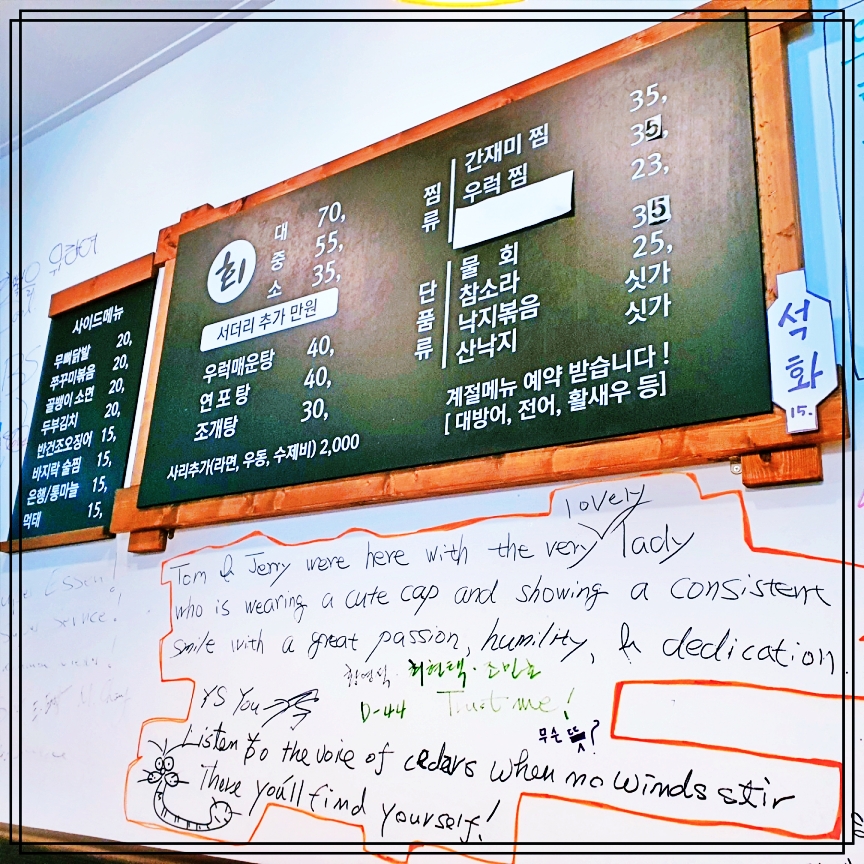 사이드메뉴
무뼈닭발 20,
쭈꾸미볶음 20,
골뱅이소면 20,
두부김치 20,
반건조오징어 15,
바지락 술찜 15,
은행/통마늘 15,
먹태 15,
회
대 70,
중 55,
소 35,
서더리 추가 만원
우럭매운탕 40,
연포탕 40,
조개탕 30,
사리추가(라면, 우동, 수제비) 2,000
찜류
간재미 찜 35,
우럭 찜 35,
23,
단품류
물 회 35,
참소라 25,
낙지볶음 싯가
산낙지 싯가
계절메뉴 예약 받습니다 !
[ 대방어, 전어, 활새우 등]
석화
15.
lovely
Tom & Jerry were here with the very lady
who is wearing a cute cap and showing a consistent
smile with a great passion, humility, & dedication.
최현택·조민호
YS You
D-44 Trust me!
무슨 뜻?
Listen to the voice of cedars when no winds stir
There you'll find yourself!